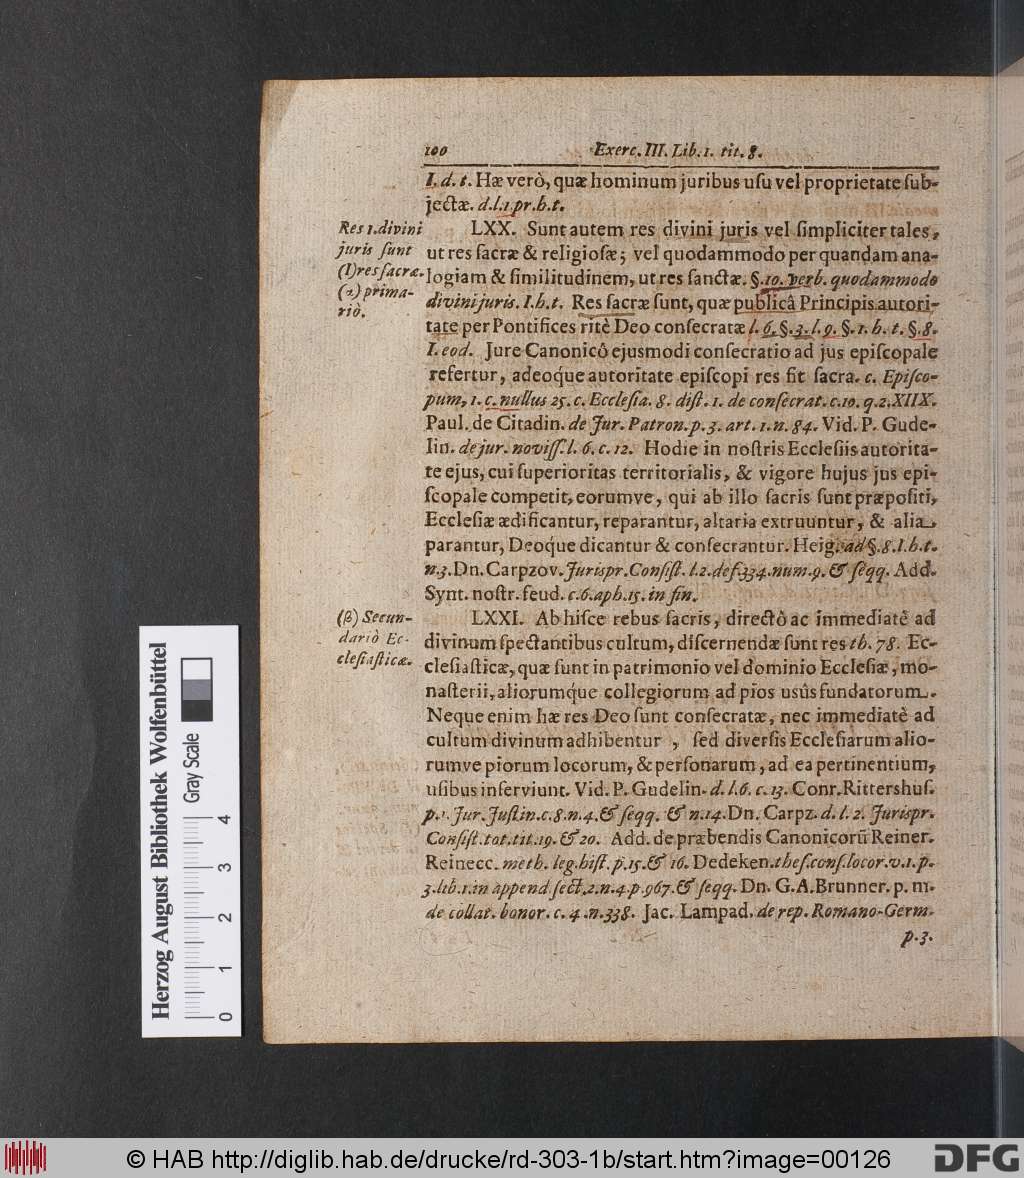 100 Exerc. III. Lib. 1. tit. 8.
I. d. t. Hæ verò, quæ hominum juribus usu vel proprietate sub-
jectæ. d. l. 1. pr. h. t.
Res 1. divini
juris sunt
(I) res sacræ.
(α) prima-
riò.
LXX. Sunt autem res divini juris vel simpliciter tales,
ut res sacræ & religiosæ; vel quodammodo per quandam ana-
logiam & similitudinem, ut res sanctæ. §. 10. verb. quodammodo
divini juris. I. h. t. Res sacræ sunt, quæ publicâ Principis autori-
tate per Pontifices ritè Deo consecratæ l. 6. §. 3. l. 9. §. 1. h. t. §. 8.
I. eod. Jure Canonicô ejusmodi consecratio ad jus episcopale
refertur, adeoque autoritate episcopi res fit sacra. c. Episco-
pum, 1. c. nullus 25. c. Ecclesia. 8. dist. 1. de consecrat. c. 10. q. 2. XIIX.
Paul. de Citadin. de Jur. Patron. p. 3. art. 1. n. 84. Vid. P. Gude-
lin. de jur. noviss. l. 6. c. 12. Hodie in nostris Ecclesiis autorita-
te ejus, cui superioritas territorialis, & vigore hujus jus epi-
scopale competit, eorumve, qui ab illo sacris sunt præpositi,
Ecclesiæ ædificantur, reparantur, altaria extruuntur, & alia
parantur, Deoque dicantur & consecrantur. Heig. ad §. 8. I. h. t.
n. 3. Dn. Carpzov. Jurispr. Consist. l. 2. def. 334. num. 9. & seqq. Add.
Synt. nostr. feud. c. 6. aph. 15. in fin.
(β) Secun-
dariò Ec-
clesiasticæ.
LXXI. Ab hisce rebus sacris, directô ac immediatè ad
divinum spectantibus cultum, discernendæ sunt res th. 78. Ec-
clesiasticæ, quæ sunt in patrimonio vel dominio Ecclesiæ, mo-
nasterii, aliorumque collegiorum ad pios usûs fundatorum.
Neque enim hæ res Deo sunt consecratæ, nec immediatè ad
cultum divinum adhibentur, sed diversis Ecclesiarum alio-
rumve piorum locorum, & personarum, ad ea pertinentium,
usibus inserviunt. Vid. P. Gudelin. d. l. 6. c. 13. Conr. Rittershus.
p. 1. Jur. Justin. c. 8. n. 4. & seqq. & n. 14. Dn. Carpz. d. l. 2. Jurispr.
Consist. tot. tit. 19. & 20. Add. de præbendis Canonicorũ Reiner.
Reinecc. meth. leg. hist. p. 15. & 16. Dedeken. thes. cons. locor. v. 1. p.
3. lib. 1. in append sect. 2. n. 4. p. 967. & seqq. Dn. G. A. Brunner. p. m.
de collat. bonor. c. 4. n. 338. Jac. Lampad. de rep. Romano-Germ.
p. 3.
Herzog August Bibliothek Wolfenbüttel
Gray Scale
0 1 2 3 4
© HAB http://diglib.hab.de/drucke/rd-303-1b/start.htm?image=00126
DFG